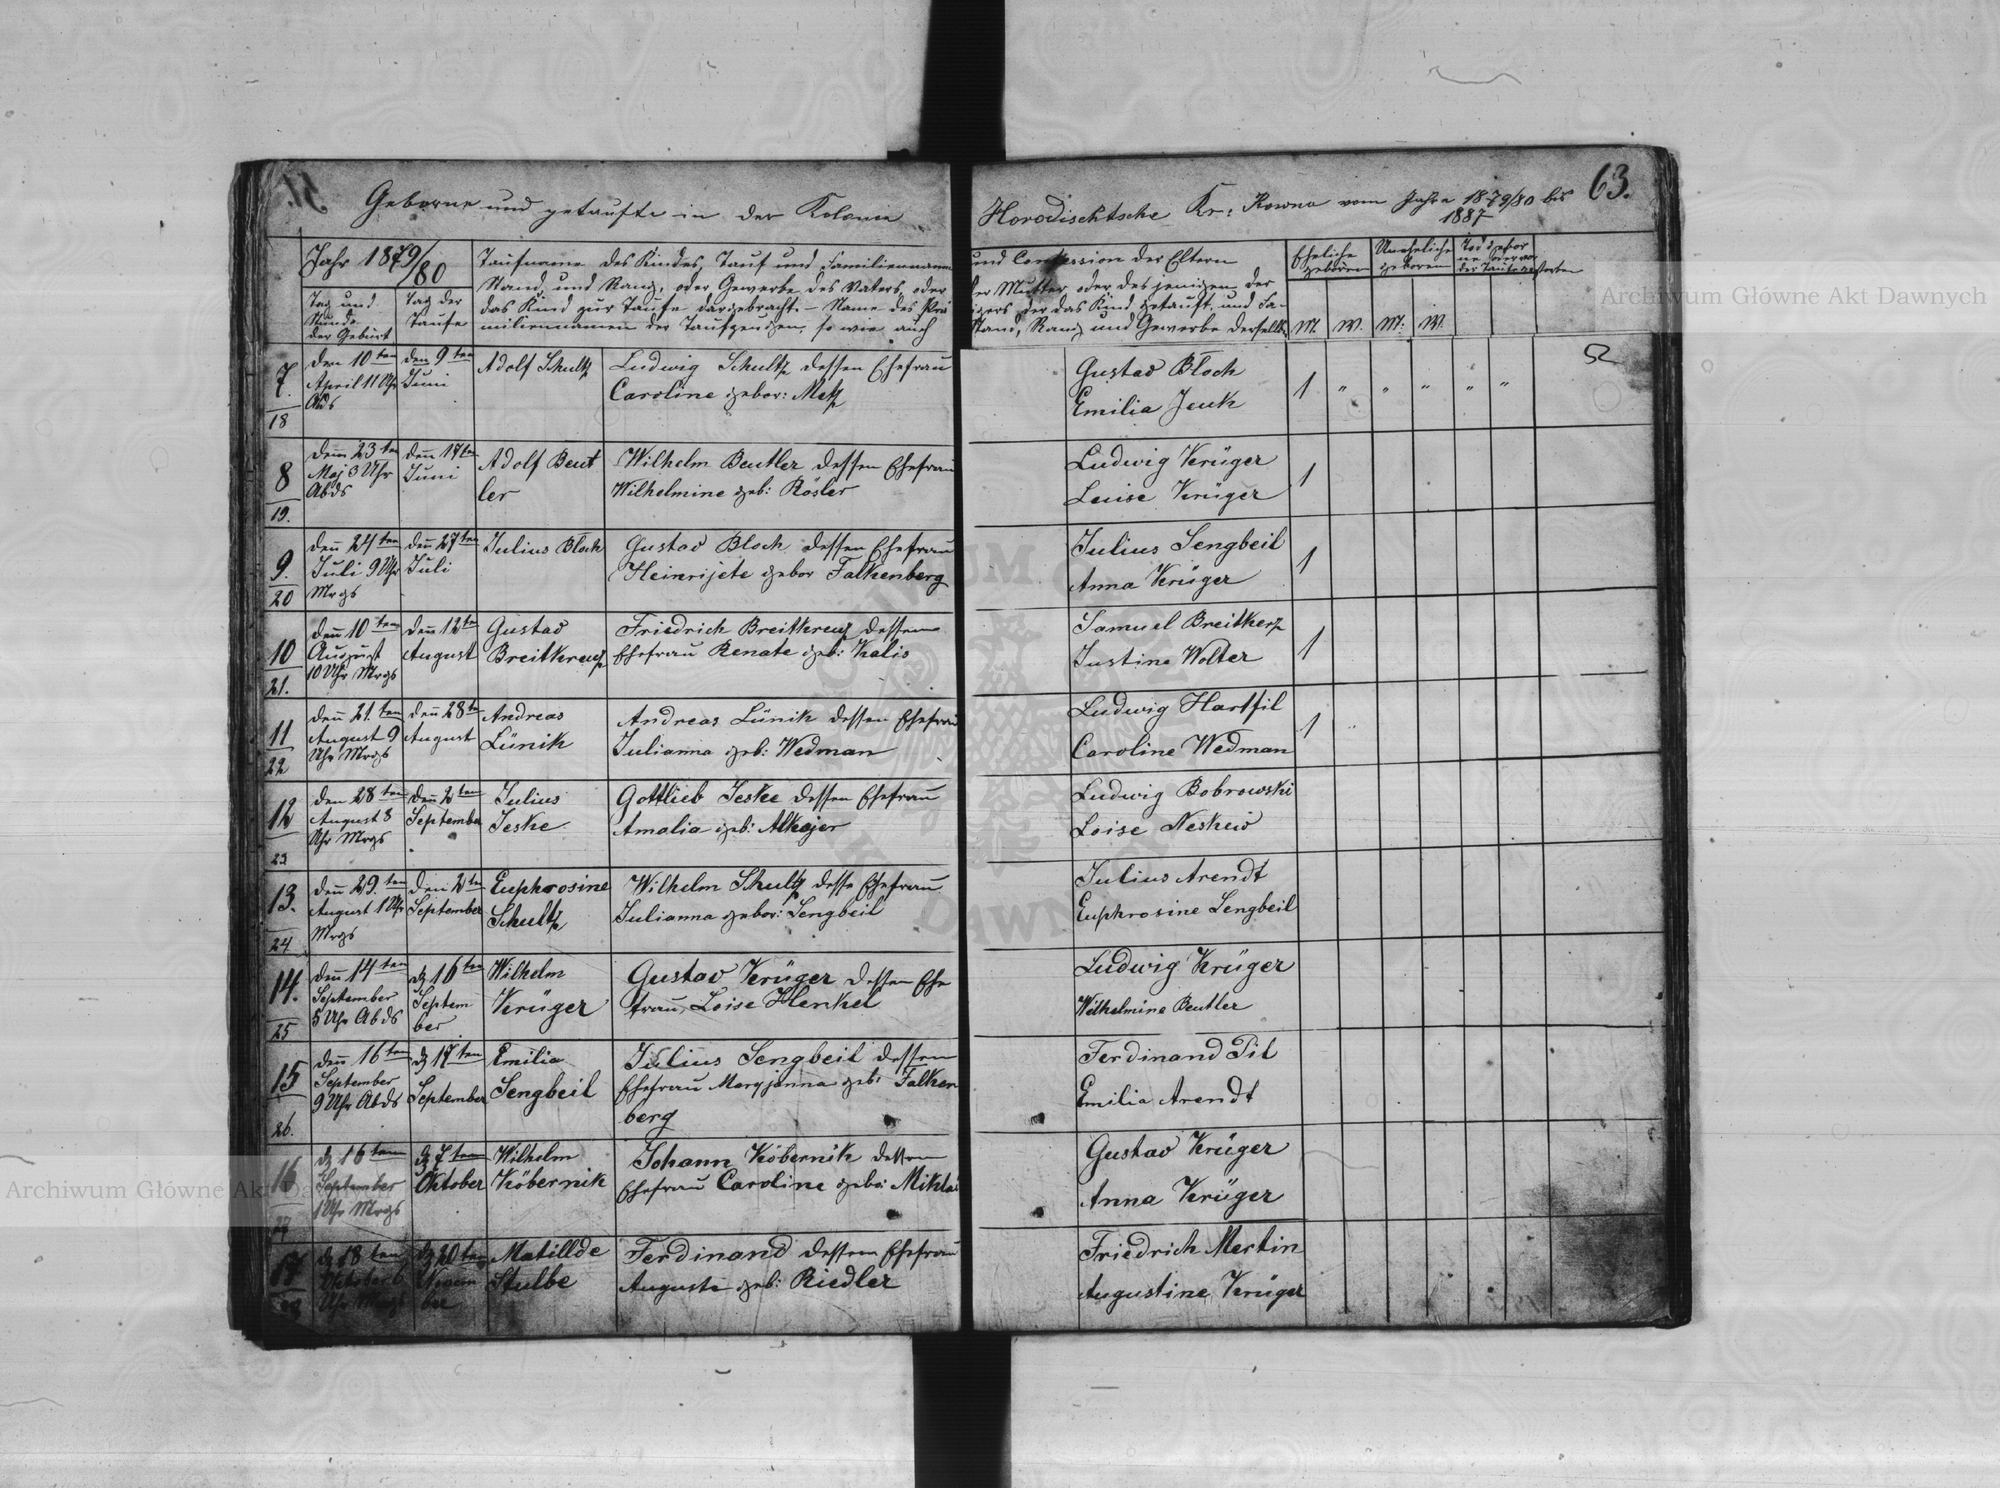 63.
Geborne und getaufte in der Kolonie
Horodischtsche Kr: Rowno vom Jahre 1879/80 bis
1887
Jahr 1879/80
Tag und
Stunde
der Geburt
Tag der
Taufe
Taufname des Kindes, Tauf und Familienname
Stand und Rang, oder Gewerbe des Vaters, oder
das Kind zur Taufe dargebracht. – Name des
miliennamen der Taufzeugen, so wie auch
und Confession der Eltern
der Mutter oder des jenigen der
der das Kind getauft. und Fa-
Stand, Rang und Gewerbe derselb.
Eheliche
geboren
Uneheliche
geboren
M. W. M. W.
7.
18
den 10 ten
April 11 Uhr
Abds
den 9 ten
Juni
Adolf Schultz
Ludwig Schultz dessen Ehefrau
Caroline gebor: Metz
Gustav Bloch
Emilia Jeuk
1 " " " " "
8
19.
denn 23 ten
Maj 3 Uhr
Abds
denn 17 ten
Juni
Adolf Beut
ler
Wilhelm Beutler dessen Ehefrau
Wilhelmine geb: Rösler
Ludwig Krüger
Leuise Krüger
1
9.
20
denn 24 ten
Juli 9 Uhr
Mrgs
denn 27 ten
Juli
Julius Bloch
Gustav Bloch dessen Ehefrau
Heinrijete gebor Falkenberg
Julius Sengbeil
Anna Krüger
1
10
21.
denn 10 ten
August
10 Uhr Mrgs
denn 12 ten
August
Gustav
Breitkreuz
Friedrich Breitkreuz dessen
Ehefrau Renate geb: Kalis
Samuel Breitkerz
Justine Wolter
1
11
22
denn 21. ten
August 9
Uhr Mrgs
denn 28 t
August
Andreas
Lünik
Andreas Lünik dessen Ehefrau
Julianna geb: Wedman
Ludwig Hartfil
Caroline Wedman
1
12
23
den 28 ten
August 8
Uhr Mrgs
denn 2 ten
September
Julius
Jeske
Gottlieb Jeske dessen Ehefrau
Amalia geb: Alkajer
Ludwig Bobrowski
Loise Neskew
13.
24
denn 29. ten
August 1 Uhr
Mrgs
den 2 ten
September
Euphrosine
Schultz
Wilhelm Schultz desse Ehefrau
Julianna gebor: Sengbeil
Julius Arendt
Euphrosine Sengbeil
14.
25
denn 14 ten
September
5 Uhr Abds
d 16 ten
Septem
ber
Wilhelm
Krüger
Gustav Krüger dessen Ehe
frau, Loise Henkel
Ludwig Krüger
Wilhelmine Beutler
15
26.
denn 16 ten
September
9 Uhr Abds
d 17 ten
September
Emilia
Sengbeil
Julius Sengbeil dessen
Ehefrau Maryjanna geb: Falken
berg
Ferdinand Pil
Emilia Arendt
16
27
d 16 ten
September
1 Uhr Mrgs
d 7 ten
Oktober
Wilhelm
Köbernik
Johann Köbernik dessen
Ehefrau Caroline geb: Miklai
Gustav Krüger
Anna Krüger
17
d 18 ten
Oktober 6
Uhr Mrgs
d 20 ten
Novem
ber
Matillde
Stulbe
Ferdinand dessen Ehefrau
Auguste geb: Riedler
Friedrich Mertin
Augustine Krüger
Archiwum Główne Akt Dawnych
Archiwum Główne Akt Dawnych